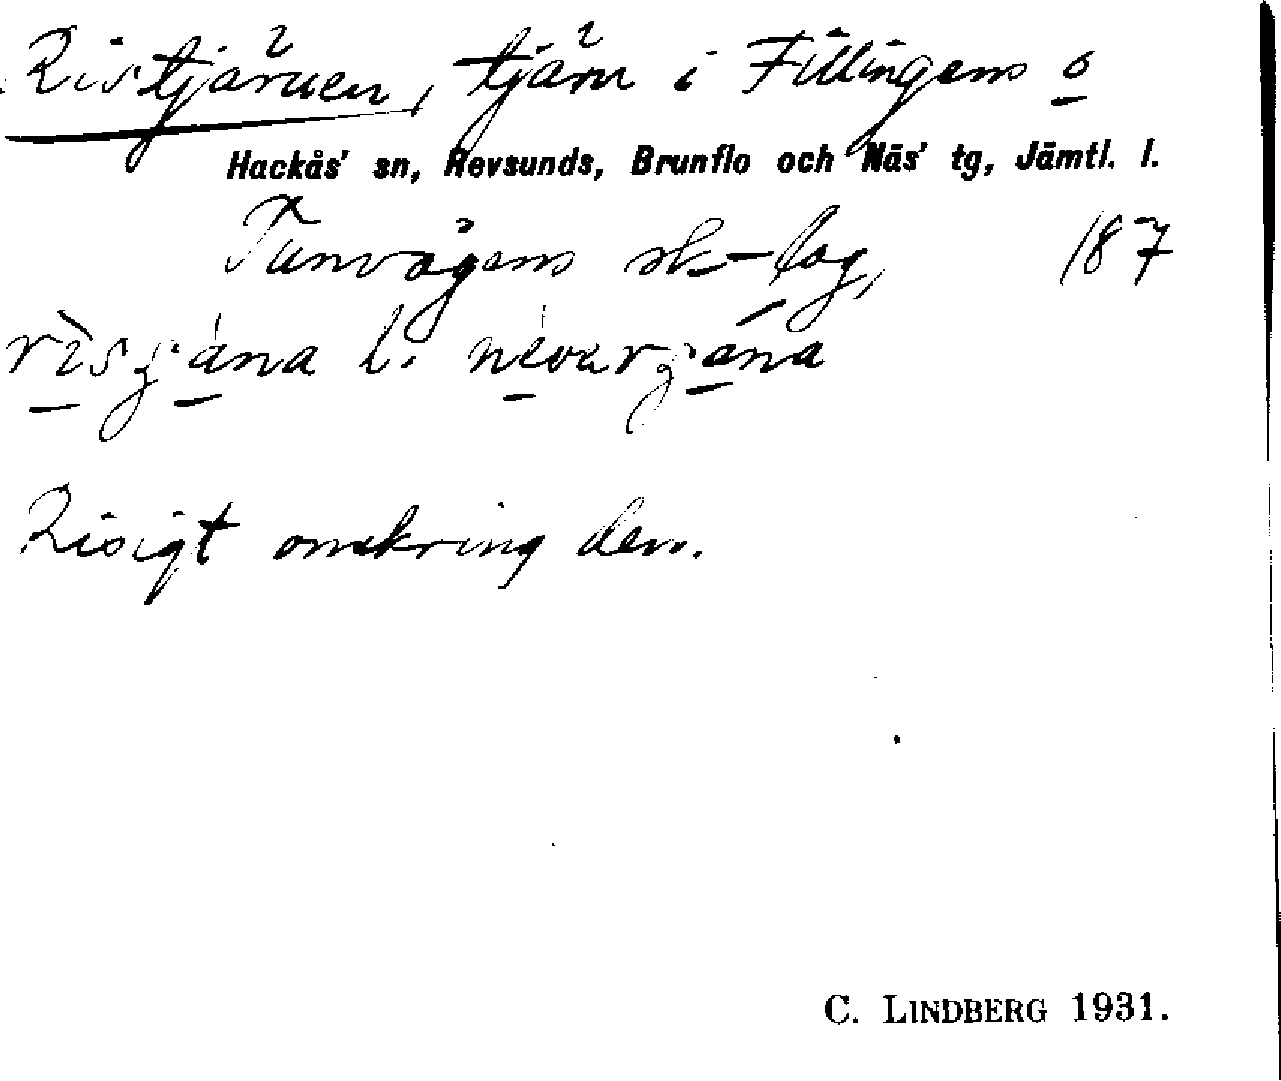 Ristjärnen, tjärn i Fillingens o
Hackås' sn, Revsunds, Brunflo och Näs' tg, Jämtl. l.
Tanvågens sk-lag, 187
l.
Risigt omkring den.
C. LINDBERG 1931.